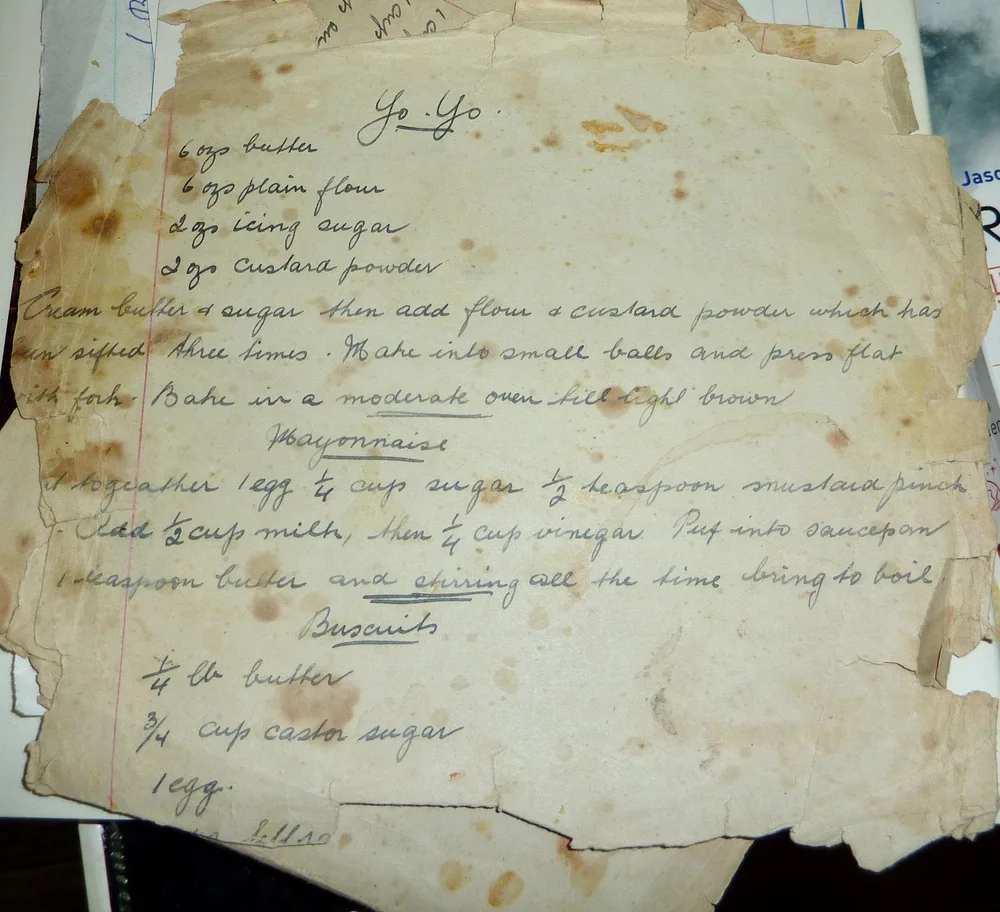 Yo. Yo.
6 ozs butter
6 ozs plain flour
2 ozs icing sugar
2 ozs custard powder
Cream butter & sugar then add flour & custard powder which has
sifted three times. Make into small balls and press flat
fork. Bake in a moderate oven till light brown
Mayonnaise
togeather 1 egg 1/4 cup sugar 1/2 teaspoon mustard pinch
Add 1/2 cup milk, then 1/4 cup vinegar Put into saucepan
1 teaspoon butter and stirring all the time bring to boil.
Buscuits
1/4 lb butter
3/4 cup castor sugar
1 egg.